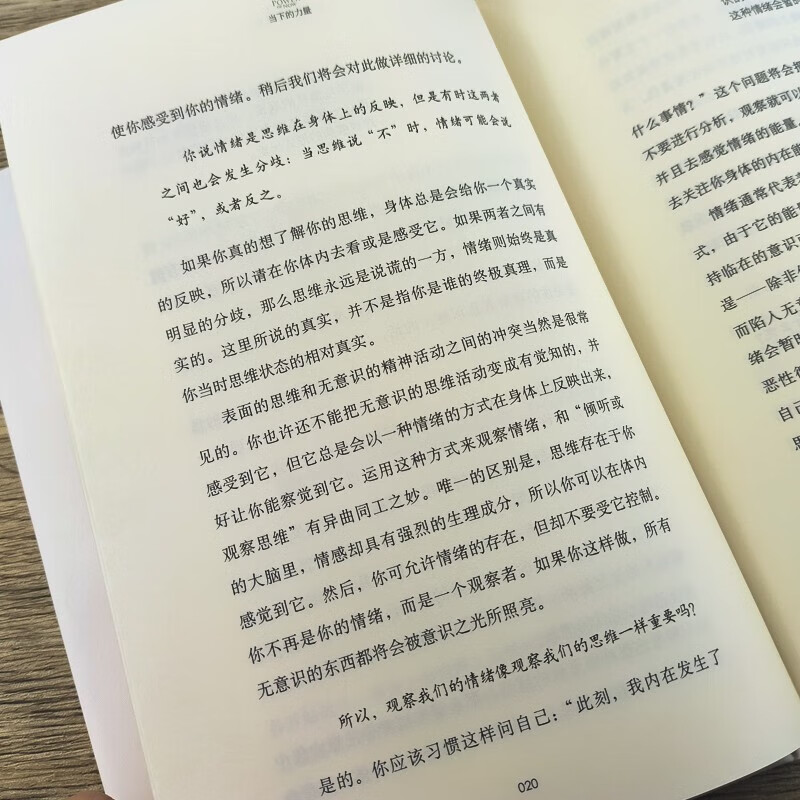 当下的力量
使你感受到你的情绪。稍后我们将会对此做详细的讨论。
你说情绪是思维在身体上的反映，但是有时这两者
之间也会发生分歧：当思维说“不”时，情绪可能会说
“好”，或者反之。
如果你真的想了解你的思维，身体总是会给你一个真实
的反映，所以请在你体内去看或是感受它。如果两者之间有
明显的分歧，那么思维永远是说谎的一方，情绪则始终是真
实的。这里所说的真实，并不是指你是谁的终极真理，而是
你当时思维状态的相对真实。
表面的思维和无意识的精神活动之间的冲突当然是很常
见的。你也许还不能把无意识的思维活动变成有觉知的，并
感受到它，但它总是会以一种情绪的方式在身体上反映出来，
好让你能察觉到它。运用这种方式来观察情绪，和“倾听或
观察思维”有异曲同工之妙。唯一的区别是，思维存在于你
的大脑里，情感却具有强烈的生理成分，所以你可以在体内
感觉到它。然后，你可允许情绪的存在，但却不要受它控制。
你不再是你的情绪，而是一个观察者。如果你这样做，所有
无意识的东西都将会被意识之光所照亮。
所以，观察我们的情绪像观察我们的思维一样重要吗？
是的。你应该习惯这样问自己：“此刻，我内在发生了
020
这种情绪会暂
什么事情？”这个问题将会
不要进行分析，观察就可以
并且去感觉情绪的能量
去关注你身体的内在能
情绪通常代表
式，由于它的能
持临在的意识
逞——除非
而陷入无
绪会暂时
恶性
自己
思